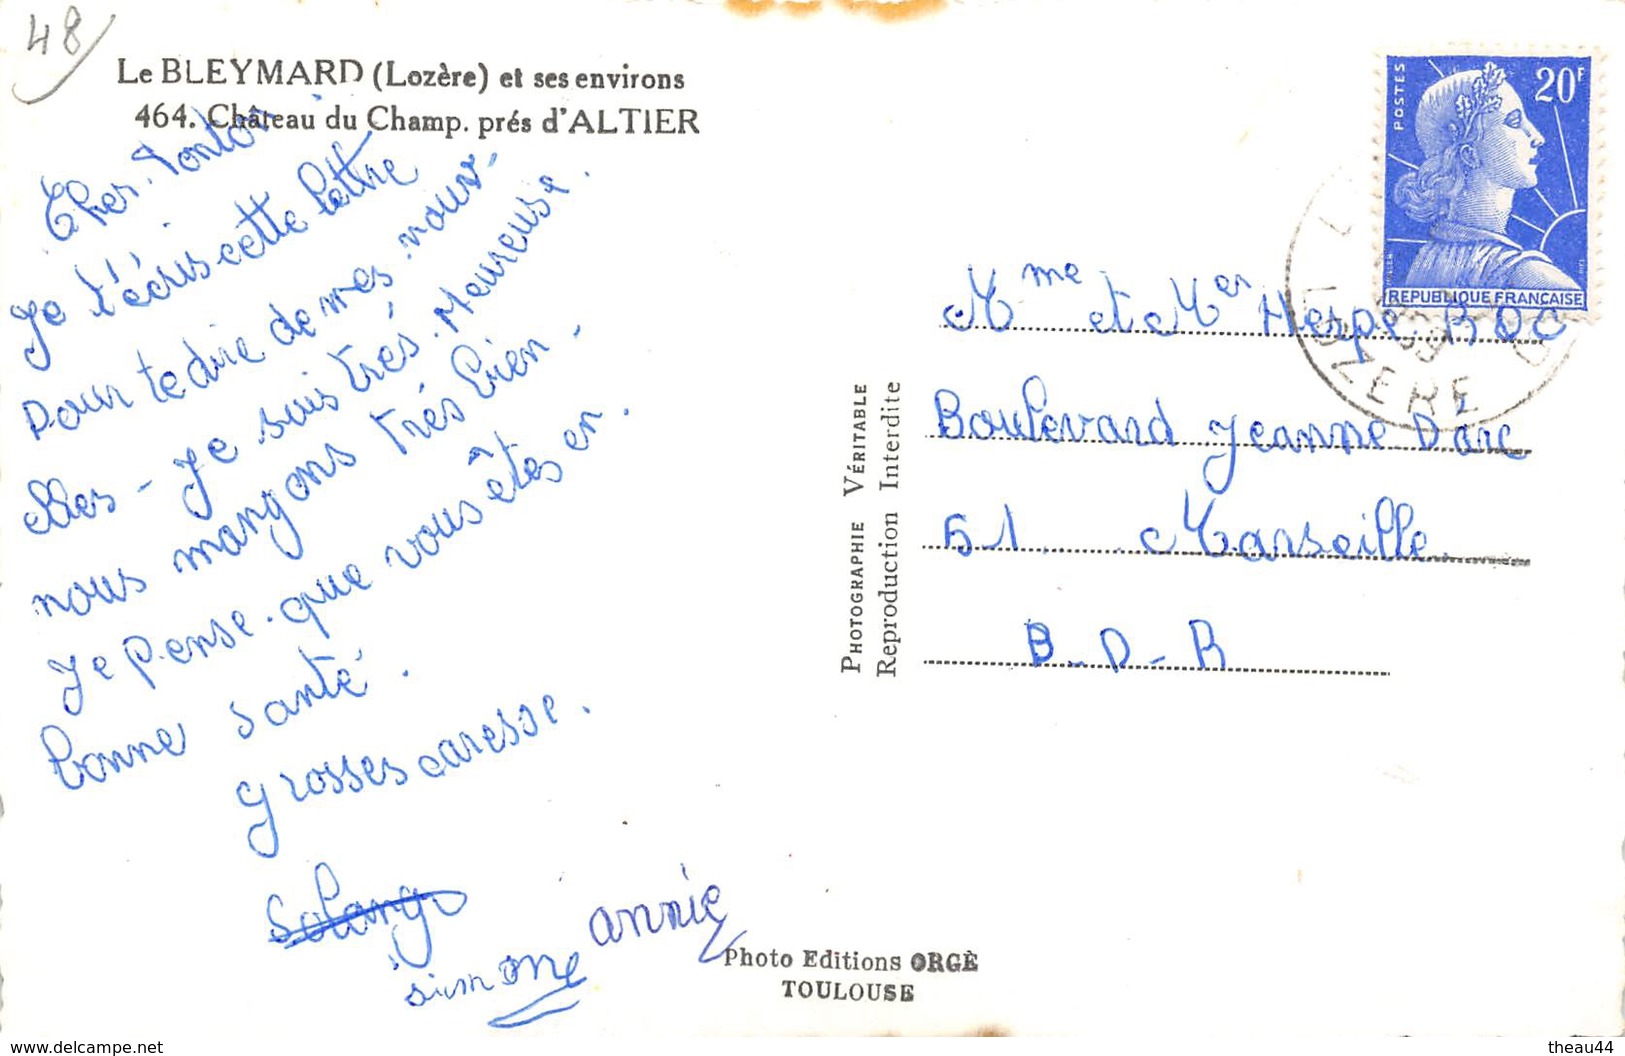 48
Le BLEYMARD (Lozère) et ses environs
464. Château du Champ. prés d'ALTIER
Cher Tonton
Je t'écris cette lettre
pour te dire de mes nouv-
elles - Je suis trés Heureuse.
nous mangons trés bien.
Je pense que vous êtes en.
bonne santé.
grosses caresse.
Solange
simone annie
Photo Editions ORGÈ
TOULOUSE
PHOTOGRAPHIE VÉRITABLE
Reproduction Interdite
POSTES
20F
REPUBLIQUE FRANÇAISE
LOZERE
Mme et Mer
Boulevard Jeanne D'arc
51 Marseille.
B-D-R
theau44
www.delcampe.net